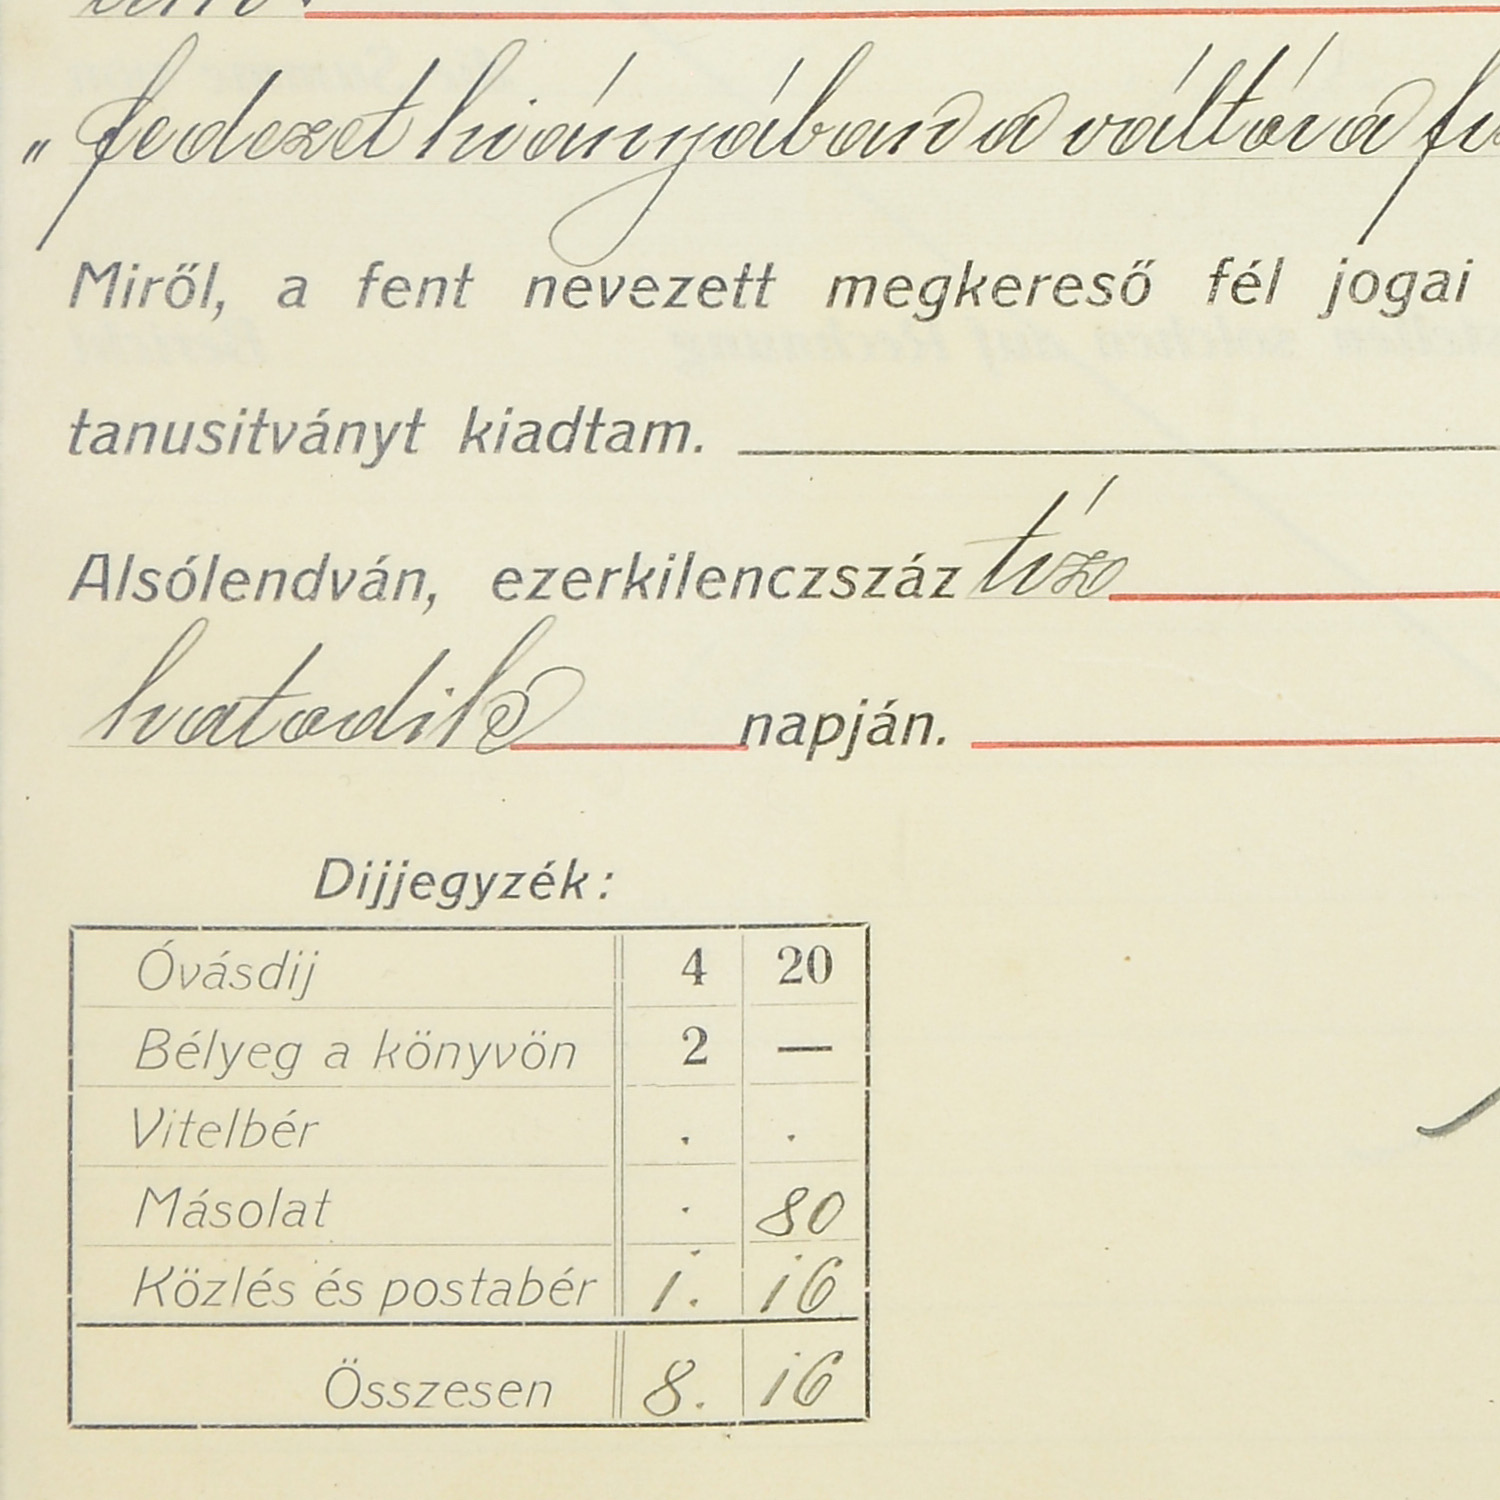 „fedezet hiányában a váltóra
Miről, a fent nevezett megkereső fél jogai
tanusitványt kiadtam.
Alsólendván, ezerkilenczszáz tíz
hatodik napján.
Dijjegyzék:
Óvásdij 4 20
Bélyeg a könyvön 2 —
Vitelbér . .
Másolat . 80
Közlés és postabér 1. 16
Összesen 8. 16